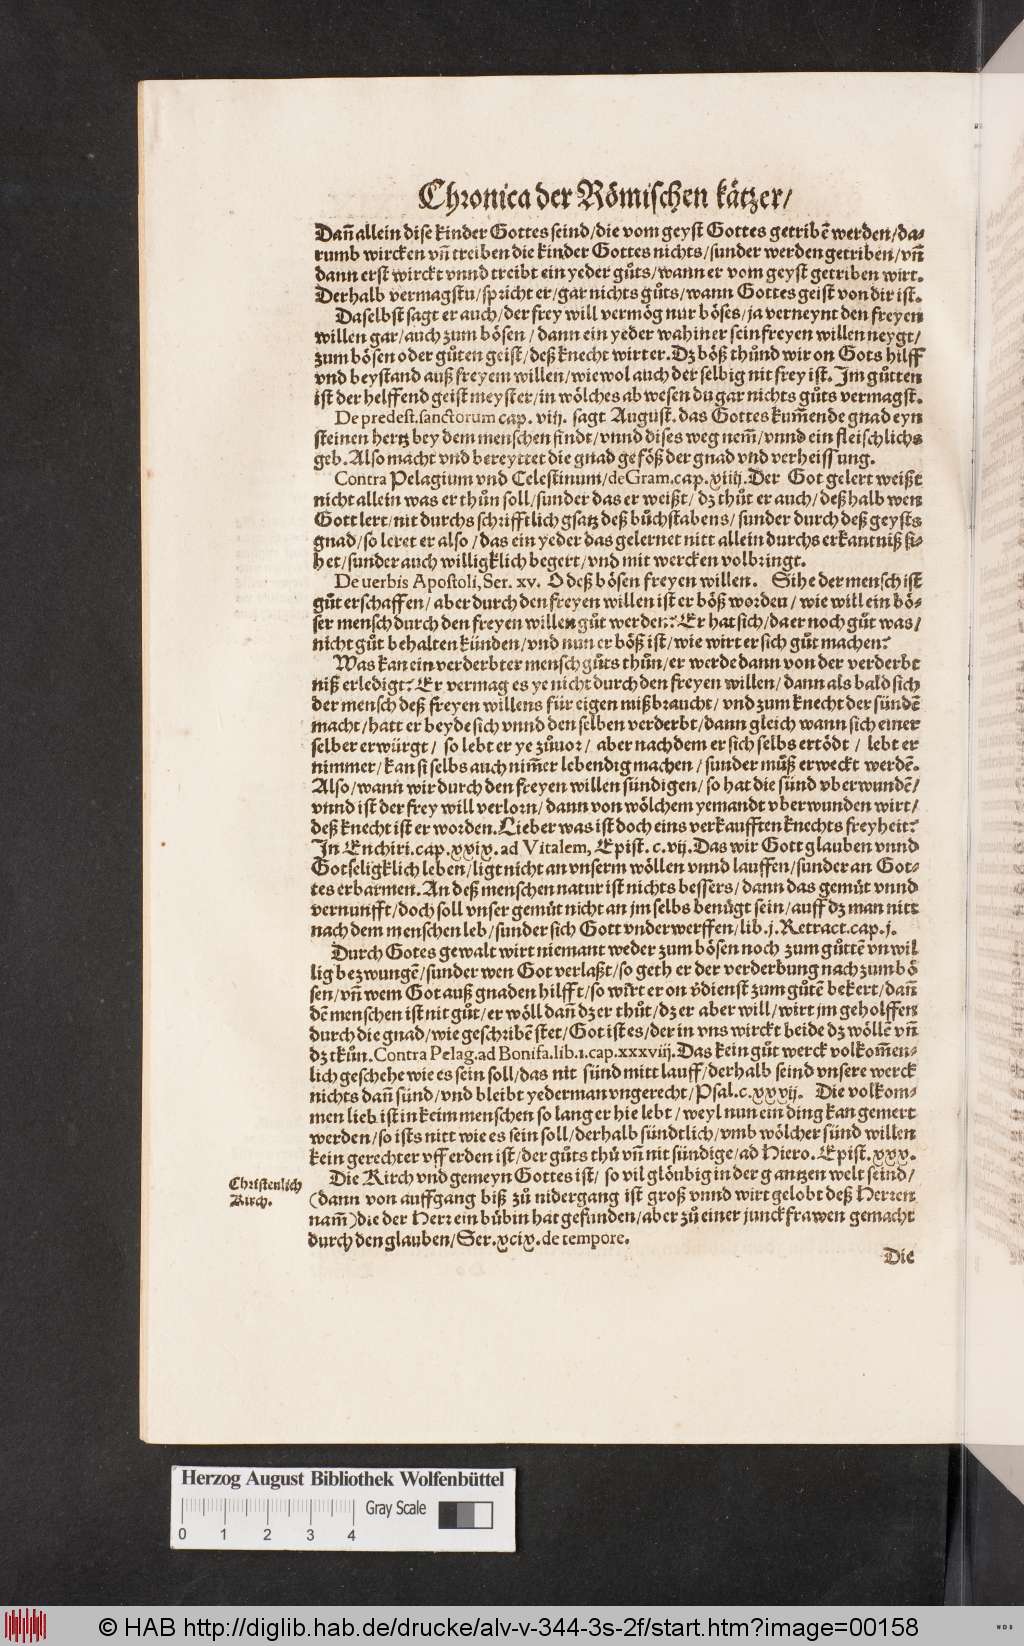 Chronica der Römischen kätzer/
Dañ allein dise kinder Gottes seind/die vom geyst Gottes getribẽ werden/da-
rumb wircken vñ treiben die kinder Gottes nichts/sunder werden getriben/vñ
dann erst wirckt vnnd treibt ein yeder gůts/wann er vom geyst getriben wirt.
Derhalb vermagstu/spricht er/gar nichts gůts/wann Gottes geist von dir ist.
Daselbst sagt er auch/der frey will vermög nur böses/ja verneynt den freyen
willen gar/auch zum bösen/dann ein yeder wahiner sein freyen willen neygt/
zum bösen oder gůten geist/deß knecht wirt er. Dz böß thůnd wir on Gots hilff
vnd beystand auß freyem willen/wiewol auch der selbig nit frey ist. Im gůtten
ist der helffend geist meyster/in wölches abwesen du gar nichts gůts vermagst.
De predest.sanctorum cap. viij. sagt August. das Gottes kum̃ende gnad eyn
steinen hertz bey dem menschen findt/vnnd dises weg nem̃/vnnd ein fleischlichs
geb. Also macht vnd bereyttet die gnad geföß der gnad vnd verheissung.
Contra Pelagium vnd Celestinum/de Gram.cap.xiiij. Der Got gelert weißt
nicht allein was er thůn soll/sunder das er weißt/dz thůt er auch/deß halb wen
Gott lert/nit durchs schrifftlich gsatz deß bůchstabens/sunder durch deß geysts
gnad/so leret er also/das ein yeder das gelernet nitt allein durchs erkantniß si-
het/sunder auch willigklich begert/vnd mit wercken volbringt.
De uerbis Apostoli, Ser. xv. O deß bösen freyen willen. Sihe der mensch ist
gůt erschaffen/aber durch den freyen willen ist er böß worden/wie will ein bö-
ser mensch durch den freyen willen gůt werden? Er hat sich/da er noch gůt was/
nicht gůt behalten künden/vnd nun er böß ist/wie wirt er sich gůt machen?
Was kan ein verderbter mensch gůts thůn/er werde dann von der verderbt
niß erledigt? Er vermag es ye nicht durch den freyen willen/dann als bald sich
der mensch deß freyen willens für eigen mißbraucht/vnd zum knecht der sündẽ
macht/hatt er beyde sich vnnd den selben verderbt/dann gleich wann sich einer
selber erwürgt/ so lebt er ye zůuor/ aber nach dem er sich selbs ertödt/ lebt er
nimmer/kan si selbs auch nim̃er lebendig machen/sunder můß erweckt werdẽ.
Also/wann wir durch den freyen willen sündigen/so hat die sünd vberwundẽ/
vnnd ist der frey will verlorn/dann von wölchem yemandt vberwunden wirt/
deß knecht ist er worden. Lieber was ist doch eins verkaufften knechts freyheit?
In Enchiri.cap.xxix. ad Vitalem, Epist. c.vij. Das wir Gott glauben vnnd
Gotseligklich leben/ligt nicht an vnserm wöllen vnnd lauffen/sunder an Got-
tes erbarmen. An deß menschen natur ist nichts bessers/dann das gemůt vnnd
vernunfft/doch soll vnser gemůt nicht an jm selbs benügt sein/auff dz man nitt
nach dem menschen leb/sunder sich Gott vnderwerffen/lib.j.Retract.cap.j.
Durch Gotes gewalt wirt niemant weder zum bösen noch zum gůttẽ vnwil
lig bezwungẽ/sunder wen Got verlaßt/so geth er der verderbung nach zum bö
sen/vñ wem Got auß gnaden hilfft/so wirt er on v̈dienst zum gůtẽ bekert/dañ
dẽ menschen ist nit gůt/er wöll dañ dz er thůt/dz er aber will/wirt jm geholffen
durch die gnad/wie geschribẽ stet/Got ist es/der in vns wirckt beide dz wöllẽ vñ
dz tkůn. Contra Pelag.ad Bonifa.lib.1.cap.xxxviij. Das kein gůt werck volkom̃en-
lich geschehe wie es sein soll/das nit sünd mitt lauff/derhalb seind vnsere werck
nichts dañ sünd/vnd bleibt yederman vngerecht/Psal.c.xxvij. Die volkom-
men lieb ist in keim menschen so lang er hie lebt/weyl nun ein ding kan gemert
werden/so ists nitt wie es sein soll/derhalb sündtlich/vmb wölcher sünd willen
kein gerechter vff erden ist/der gůts thů vñ nit sündige/ad Hiero. Epist. xxx.
Christenlich
Kirch.
Die Kirch vnd gemeyn Gottes ist/ so vil glöubig in der gantzen welt seind/
(dann von auffgang biß zů nidergang ist groß vnnd wirt gelobt deß Herren
nam̃) die der Herr ein bübin hat gefunden/aber zů einer junckfrawen gemacht
durch den glauben/Ser.xcix.de tempore.
Die
Herzog August Bibliothek Wolfenbüttel
Gray Scale
0 1 2 3 4
© HAB http://diglib.hab.de/drucke/alv-v-344-3s-2f/start.htm?image=00158